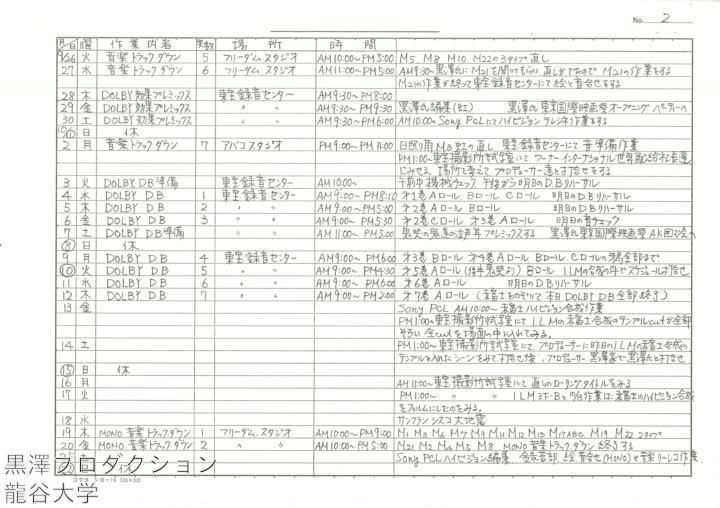 No. 2
月 日 曜 作業内容 実数 場所 時間
9/26 火 音楽トラックダウン 5 フリーダムスタジオ AM10:00~PM5:00 M5. M8 M10 M22の3タイプ直し
27 水 音楽トラックダウン 6 フリーダムスタジオ AM11:00~PM5:00 AM9:30~黒澤氏にM21を聞いてもらい直しがでたので M21の作業をする
M21の作業が終って東宝録音センターにて絵と音合せをする
28 木 DOLBY効果プレミックス 東宝録音センター AM9:30~PM8:00
29 金 DOLBY効果プレミックス 〃 〃 AM9:30~PM9:30 黒澤氏編集(虹) 黒澤氏東京国際映画祭オープニングパーティーへ
30 土 DOLBY効果プレミックス 〃 〃 AM9:30~PM6:00 AM10:00~Sony PCLにてハイビジョンテレシネ作業をする
10/1 日 休
2 月 音楽トラックダウン 7 アバコスタジオ PM9:00~PM11:00 日照り雨 M3 虹の直し 東宝録音センターにて音準備作業
PM1:00~東宝撮影所試写室にてワーナーインターナショナル世界配給社長達
にみせる、場所を考えてプロデューサー達と打合せをする
3 火 DOLBY DB準備 東宝録音センター AM10:00~ 午前中機械チェック 午後から明日のDBリハーサル
4 水 DOLBY DB 1 東宝録音センター AM9:00~PM8:10 オ1巻Aロール Bロール Cロール 明日のDBリハーサル
5 木 DOLBY DB 2 〃 〃 AM9:00~PM5:00 オ2巻Aロール Bロール 明日のDBリハーサル
6 金 DOLBY DB 3 〃 〃 AM9:00~PM5:30 オ2巻Cロール オ3巻Aロール 明日の音チェック
7 土 DOLBY DB準備 〃 〃 AM11:00~PM5:00 鬼哭の鬼達の泣声等プレミックスする 黒澤氏東京国際映画祭AK図
8 日 休
9 月 DOLBY DB 4 東宝録音センター AM9:00~PM6:00 オ3巻Bロール オ4巻Aロール Bロール Cロールの鴉全部まで
10 火 DOLBY DB 5 〃 〃 AM9:00~PM4:30 オ5巻Aロール(後半鬼哭より)Bロール ILMの合成の件でスケジュール打合せ
11 水 DOLBY DB 6 〃 〃 AM9:00~PM6:00 オ6巻Aロール 明日のDBリハーサル
12 木 DOLBY DB 7 〃 〃 AM9:00~PM2:00 オ7巻Aロール(赤富士をのぞいて本日DOLBY DB全部終了)
13 金 Sony PCL AM10:00~赤富士ハイビジョン合成作業
PM1:00~東宝撮影所試写室にてILMの赤富士合成のテンプルcutが全部
そろい全cutを場面の中に入れてみる。
14 土 PM1:00~東宝撮影所試写室にてプロデューサーに昨日のILMの赤富士合成の
テンプルを入れたシーンをみせて打合せ後、プロデューサー黒澤家で黒澤氏と打合せ
15 日 休
16 月 AM11:00~東宝撮影所試写室にて直しのローリングタイトルをみる
17 火 PM1:00~ 〃 〃 ILM 3F-Bと10/13作業した赤富士のハイビジョン合成
をフィルムにしたのをみる。
18 水 サンフランシスコ大地震
19 木 MONO音楽トラックダウン 1 フリーダム.スタジオ AM10:00~PM9:00 M1 M3 M6 M7 M9 M11 M12 M13 M15 M17ABC. M19 M22 2タイプ
20 金 MONO音楽トラックダウン 2 〃 〃 AM10:00~PM5:00 M21 M2 M4 M5 M8 MONO音楽トラックダウン終了する
Sony PCLハイビジョン編集、録音部、絵.音合せ(MONO)と音楽リーレコ作業
日 休
コクヨ シヨ-15
黒澤プロダクション
龍谷大学